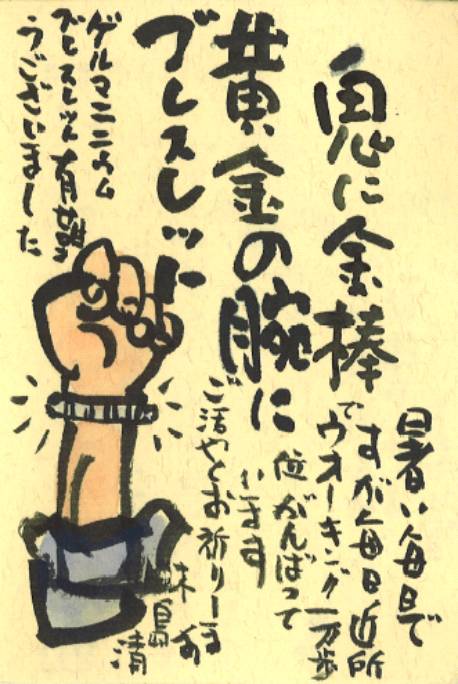 鬼に金棒
黄金の腕に
ブレスレット
ゲルマニニウム
ブレスレット有難
うございました
暑い毎日で
すが毎日近所
でウオーキング一万歩
位がんばって
います
ご活やくお祈りしま
清